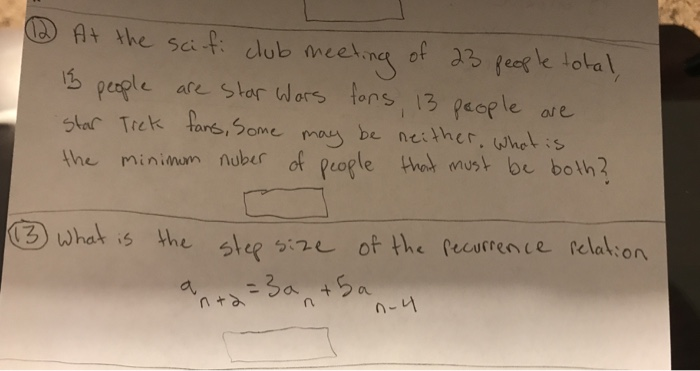 (12) At the sci-fi club meeting of 23 people total,
people are Star Wars fans, 13 people are
Star Trek fans, Some may be neither. What is
the minimum nuber of people that must be both?
(13) What is the step size of the recurrence relation
a_{n+2} = 3a_n + 5a_{n-4}